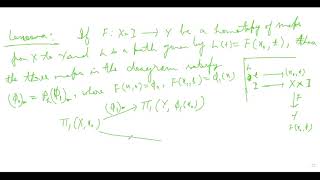 Lemma: If F: X×I → Y be a homotopy of maps
from X to Y and h is a path given by h(t) = F(x₀, t), then
the three maps in the diagram satisfy
(φ₀)* = βₕ(φ₁)*, where F(x,0) = φ₀, F(x,1) = φ₁(x)
(φ₁)* π₁(Y, φ₁(x₀))
π₁(X, x₀)
h
t (x₀, t)
I → X×I
↓ F
Y
F(x₀, t)